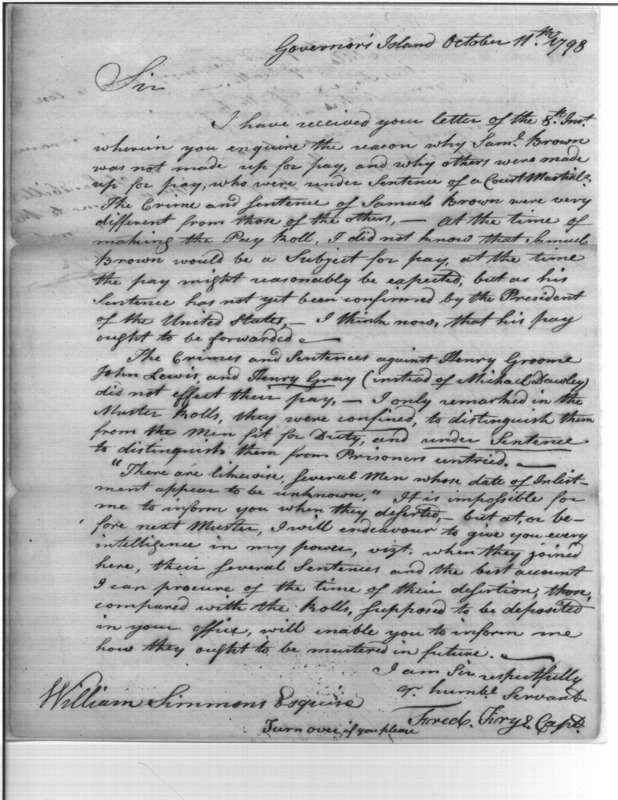 Governor's Island October 11th 1798
Sir
I have received your letter of the 8th Inst.
wherein you enquire the reason why Saml. Brown
was not made up for pay, and why others were made
up for pay, who were under Sentence of a Court Martial?
The Crime and Sentence of Samuel Brown were very
different from those of the others, — at the time of
making the Pay Roll, I did not know that Samuel
Brown would be a Subject for pay, at the time
the pay might reasonably be expected, but as his
Sentence has not yet been confirmed by the President
of the United States, — I think now, that his pay
ought to be forwarded —
The Crimes and Sentences against Henry Groome
John Lewis, and Henry Gray (instead of Michael Dawley)
did not effect their pay, — I only remarked in the
Muster Rolls, they were confined, to distinguish them
from the Men fit for Duty, and under Sentence
to distinguish them from Prisoners untried. —
"There are likewise, Several Men whose date of Inlist-
ment appear to be unknown," It is impossible for
me to inform you when they deserted, — but at, or be-
fore next Muster, I will endeavour to give you every
intelligence in my power, vizt. when they joined
here, their Several Sentences and the best account
I can procure of the time of their desertion, those,
compared with the Rolls, supposed to be deposited
in your office, will enable you to inform me
how they ought to be mustered in future. —
I am Sir respectfully
yr. humble Servant
William Simmons Esquire
Fredk. Frye Capt.
Turn over, if you please